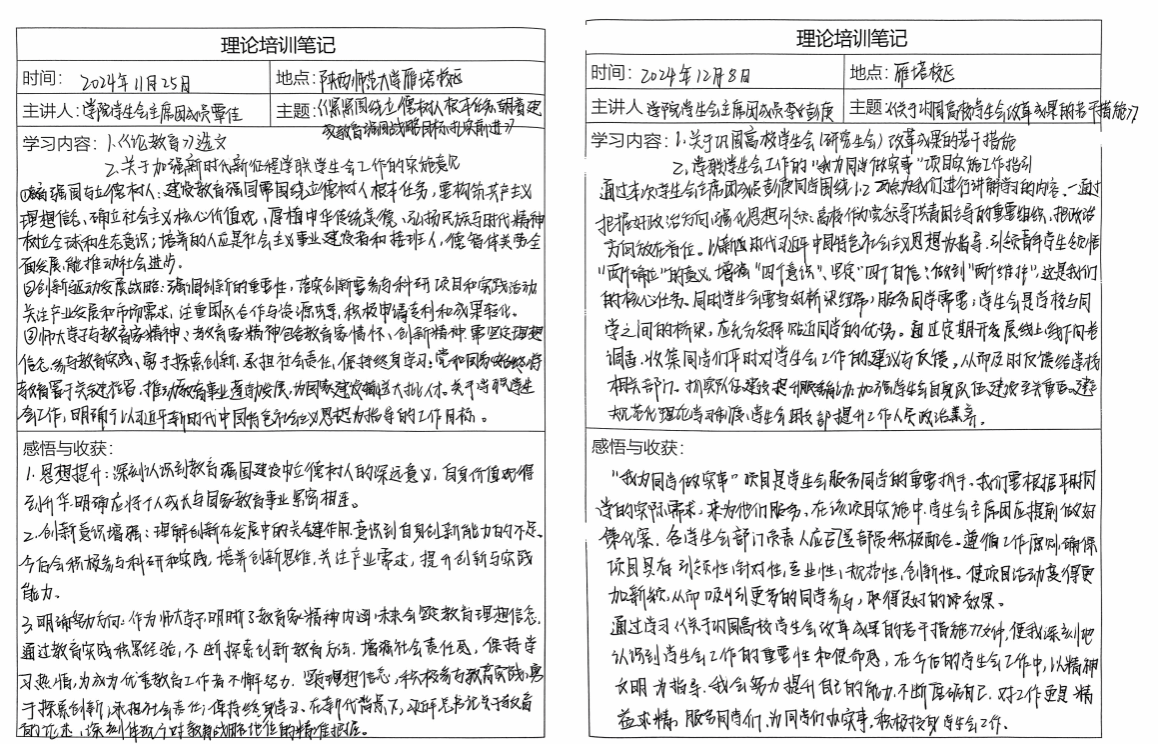 理论培训笔记
时间: 2024年11月25日
地点: 陕西师范大学雁塔校区
主讲人: 学院学生会主席团成员覃佳
主题: 《紧紧围绕立德树人根本任务 朝着建
成教育强国战略目标扎实前进》
学习内容: 1.《论教育》选文
2.关于加强新时代新征程学联学生会工作的实施意见
①教育强国与立德树人: 建设教育强国需围绕立德树人根本任务, 要构筑共产主义
理想信念, 确立社会主义核心价值观, 厚植中华传统美德、弘扬民族与时代精神
树立全球和生态意识; 培养的人应是社会主义事业建设者和接班人, 德智体美劳全
面发展, 能推动社会进步。
②创新驱动发展战略: 强调创新的重要性, 落实创新需参与科研项目和实践活动
关注产业发展和市场需求, 注重团队合作与资源共享, 积极申请专利和成果转化。
③师大学子与教育家精神: 教育家精神包含教育家情怀、创新精神 需坚定理想
信念, 参与教育实践、勇于探索创新、承担社会责任, 保持终身学习。党和国家始终将
教育置于关键位置, 推动教育事业蓬勃发展, 为国家建设输送大批人才。关于学联学生
会工作, 明确了以习近平新时代中国特色社会主义思想为指导的工作目标。
感悟与收获:
1.思想提升: 深刻认识到教育强国建设中立德树人的深远意义, 自身价值观得
到升华, 明确应将个人成长与国家教育事业紧密相连。
2.创新意识增强: 理解创新在发展中的关键作用, 意识到自身创新能力的不足。
今后会积极参与科研和实践, 培养创新思维, 关注产业需求, 提升创新与实践
能力。
3.明确努力方向: 作为师大学子明晰了教育家精神内涵, 未来会坚定教育理想信念,
通过教育实践积累经验, 不断探索创新教育方法. 增强社会责任感, 保持学
习热情, 为成为优秀教育工作者不懈努力. 坚定理想信念, 积极参与教育实践, 勇
于探索创新, 承担社会责任, 保持终身学习. 在新时代背景下, 习近平总书记关于教育
的论述, 深刻体现了对教育战略地位的精准把握。
理论培训笔记
时间: 2024年12月8日
地点: 雁塔校区
主讲人 学院学生会主席团成员李
主题 《关于巩固高校学生会改革成果的若干措施》
学习内容: 1.关于巩固高校学生会(研究生会)改革成果的若干措施
2.学联学生会工作的“我为同学做实事”项目实施工作指引
通过本次学生会主席团成员同学围绕1.2两点为我们进行讲解学习的内容. 一通过
把握好政治方向, 强化思想引领: 高校作为党领导下共青团主导的重要组织, 把政治
方向放在首位。以新时代习近平中国特色社会主义思想为指导, 引领青年学生领悟
“两个确立”的意义, 增强“四个意识”、坚定“四个自信”; 做到“两个维护”, 这是我们
的核心任务。同时学生会需当好桥梁纽带, 服务同学需要; 学生会是学校与同
学之间的桥梁, 应充分发挥贴近同学的优势。通过定期开展线上线下问卷
调查, 收集同学们平时对学生会工作的建议与反馈, 从而及时反馈给学校
相关部门. 抓实队伍建设 提升服务能力, 加强学生会自身队伍建设至关重要。建
规范化理论学习制度, 学生会团支部提升工作人员政治素养.
感悟与收获:
“我为同学做实事”项目是学生会服务同学的重要抓手, 我们要根据平时同
学的实际需求, 来为他们服务, 在该项目实施中, 学生会主席团应提前做好
策划案, 各学生会部门负责人应召集部员积极配合。遵循工作原则, 确保
项目具有引领性, 针对性, 专业性, 规范性, 创新性。使项目活动变得更
加新颖, 从而吸引到更多的同学参与, 取得良好的效果。
通过学习《关于巩固高校学生会改革成果的若干措施》文件, 使我深刻地
认识到学生会工作的重要性和使命感, 在今后的学生会工作中, 以精神
文明为指导. 我会努力提升自己的能力, 不断磨砺自己, 对工作更是精
益求精, 服务同学们, 为同学们办实事, 积极投身学生会工作.